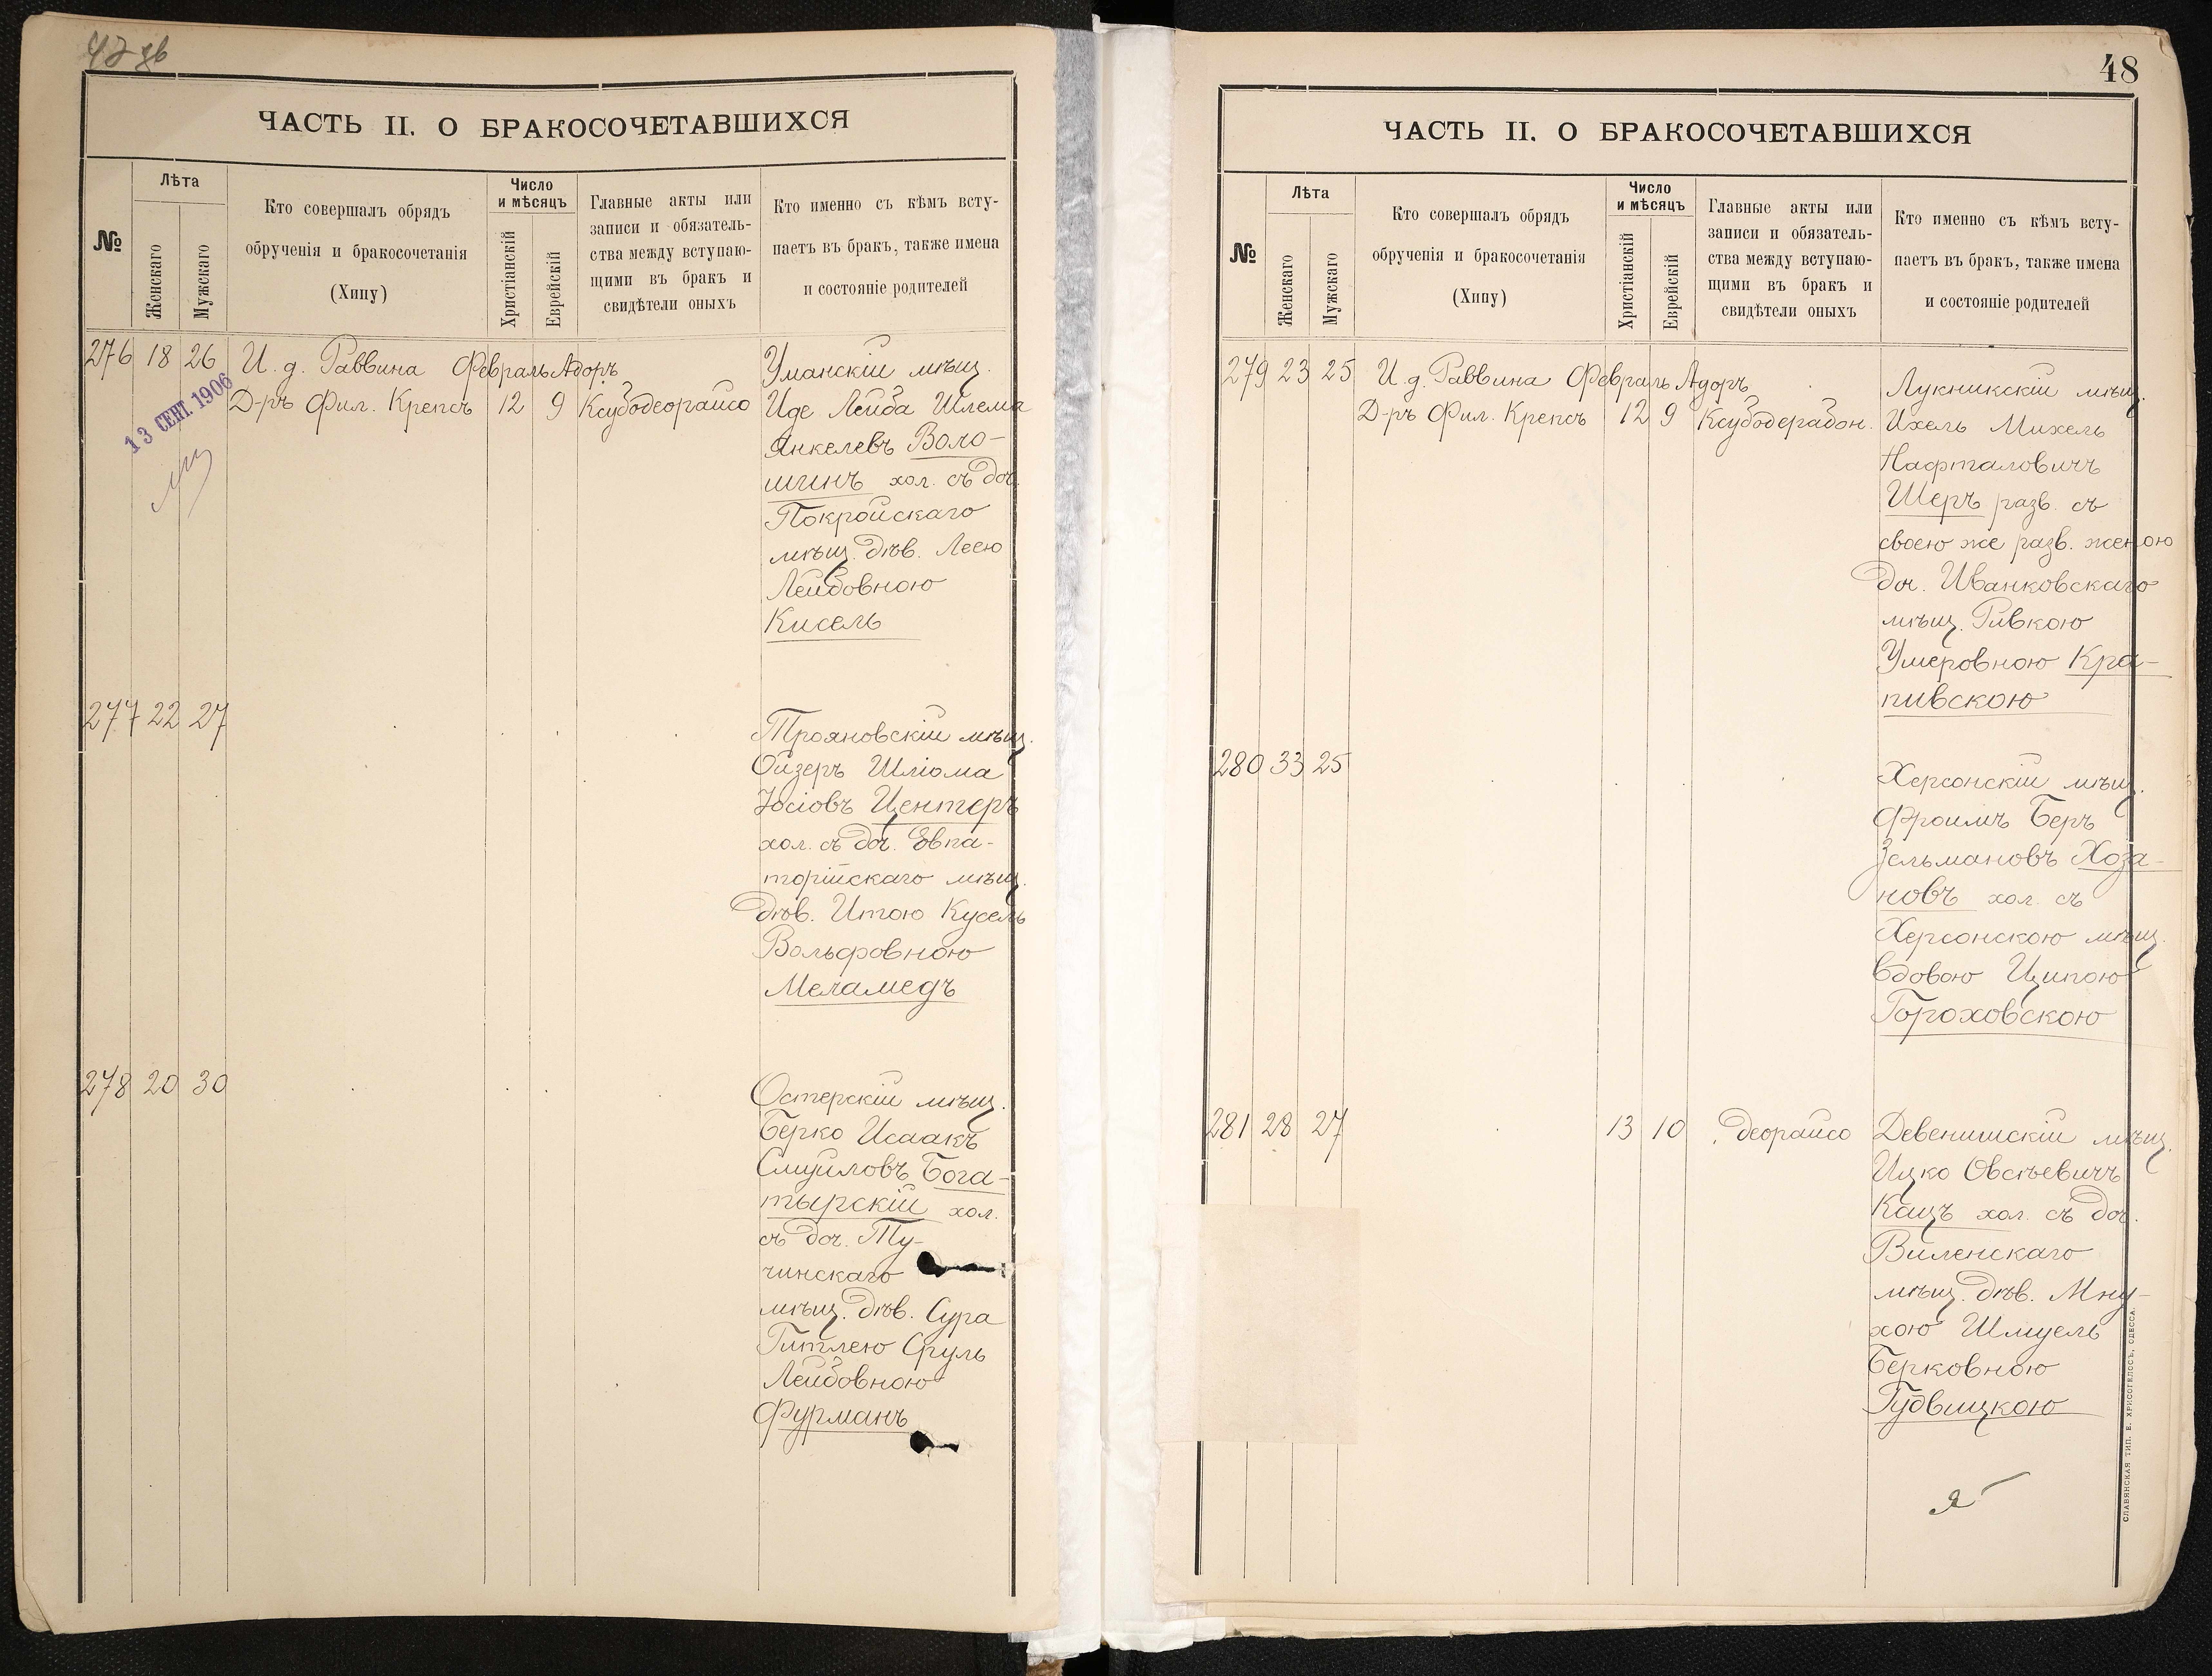 ЧАСТЬ II. О БРАКОСОЧЕТАВШИХСЯ
№
Лѣта
Женскаго
Мужскаго
Кто совершалъ обрядъ
обрученія и бракосочетанія
(Хипу)
Число
и мѣсяцъ
Христіанскій
Еврейскій
Главные акты или
записи и обязатель-
ства между вступаю-
щими въ бракъ и
свидѣтели оныхъ
Кто именно съ кѣмъ всту-
паетъ въ бракъ, также имена
и состояніе родителей
276 18 26 И. д. Раввина Февраль Адоръ
Д-ръ Фил. Крепсъ 12 9 Ксубодеорайсо
13 СЕНТ. 1906
Уманскій мѣщ.
Иде Лейба Шлема
Янкелевъ Воло-
шинъ хол. съ доч.
Покройскаго
мѣщ. дѣв. Леею
Лейбовною
Кисель
277 22 27
Трояновскій мѣщ.
Ойзеръ Шліома
Іосіовъ Центеръ
хол. съ доч. Евпа-
торійскаго мѣщ.
дѣв. Итою Кусель
Вольфовною
Меламедъ
278 20 30
Остерскій мѣщ.
Берко Исаакъ
Смуйловъ Бога-
тырскій хол.
съ доч. Ту-
чинскаго
мѣщ. дѣв. Сура
Гитлею Сруль
Лейбовною
Фурманъ
48
ЧАСТЬ II. О БРАКОСОЧЕТАВШИХСЯ
№
Лѣта
Женскаго
Мужскаго
Кто совершалъ обрядъ
обрученія и бракосочетанія
(Хипу)
Число
и мѣсяцъ
Христіанскій
Еврейскій
Главные акты или
записи и обязатель-
ства между вступаю-
щими въ бракъ и
свидѣтели оныхъ
Кто именно съ кѣмъ всту-
паетъ въ бракъ, также имена
и состояніе родителей
279 23 25 И. д. Раввина Февраль Адоръ
Д-ръ Фил. Крепсъ 12 9 Ксубодерабон.
Лукникскій мѣщ.
Ихель Михель
Нафталовичъ
Шеръ разв. съ
своею же разв. женою
доч. Иванковскаго
мѣщ. Ривкою
Умеровною Кра-
пивскою
280 33 25
Херсонскій мѣщ.
Фроимъ Беръ
Зельмановъ Хоза-
новъ хол. съ
Херсонскою мѣщ.
вдовою Ципою
Гороховскою
281 28 27 13 10 деорайсо
Девенишскій мѣщ.
Ицко Овсѣевичъ
Кацъ хол. съ доч.
Виленскаго
мѣщ. дѣв. Мну-
хою Шмуель
Берковною
Гудвицкою
СЛАВЯНСКАЯ ТИП. Е. ХРИСОГЕЛОСЪ, ОДЕССА.